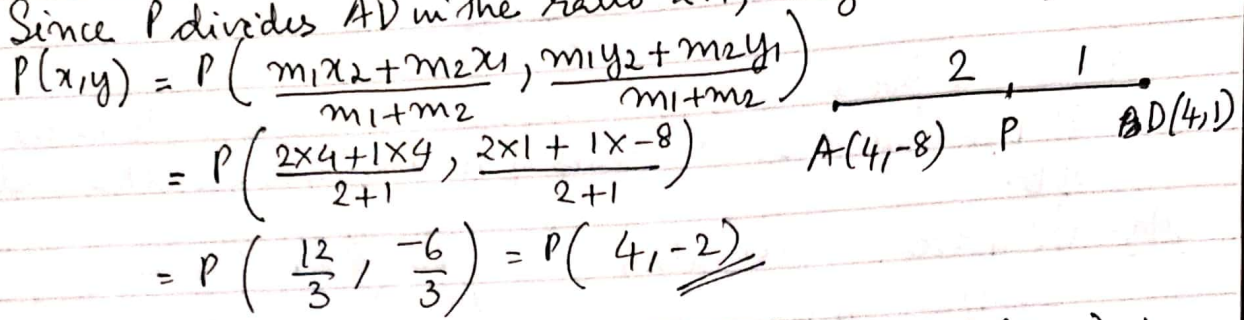 Since P divides AD in the
P(x,y) = P( (m1x2+m2x1)/(m1+m2) , (m1y2+m2y1)/(m1+m2) )
= P( (2×4+1×4)/(2+1) , (2×1+1×-8)/(2+1) )
= P( 12/3 , -6/3 ) = P( 4,-2)
2 1
A(4,-8) P D(4,1)